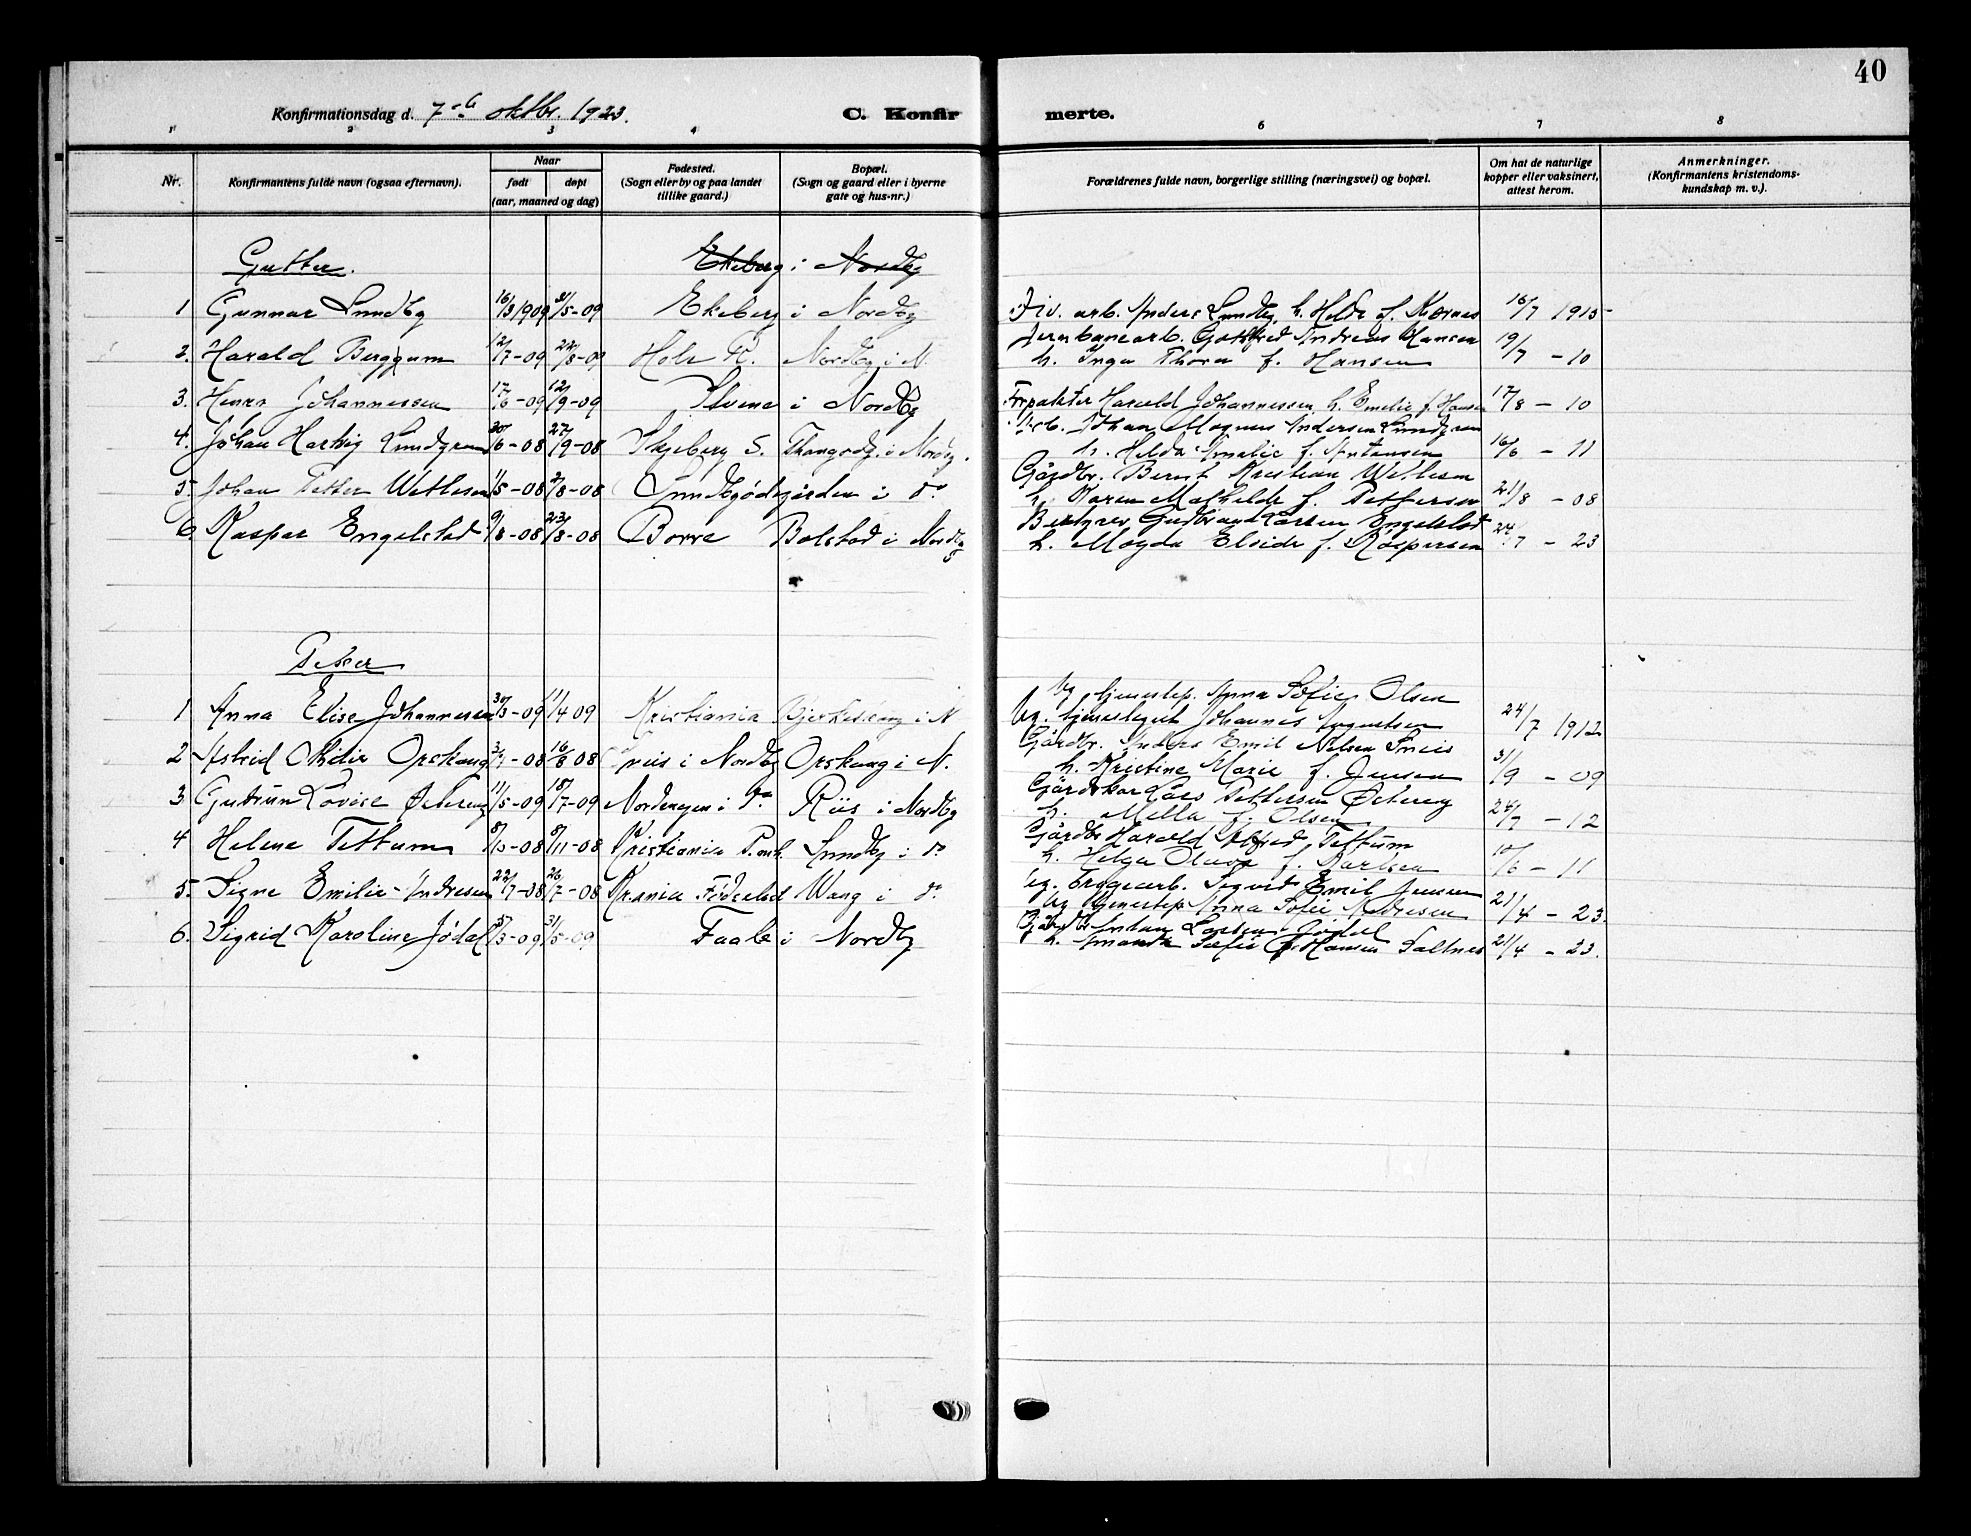 40
Konfirmationsdag d. 7de oktbr. 1923. C. Konfir merte.
1 2 3 4 6 7 8
Nr.
Konfirmantens fulde navn (ogsaa efternavn).
Naar
født døpt
(aar, maaned og dag)
Fødested.
(Sogn eller by og paa landet
tillike gaard.)
Bopæl.
(Sogn og gaard eller i byerne
gate og hus-nr.)
Forældrenes fulde navn, borgerlige stilling (næringsvei) og bopæl.
Om hat de naturlige
kopper eller vaksinert,
attest herom.
Anmerkninger.
(Konfirmantens kristendoms-
kundskap m. v.).
Gutter.
Ekeberg i Nordby
1 Gunnar Lundby 16/3 1909 31/5-09 Ekeberg i Nordby Anders Lundby h. Hilda f. Kærnes 16/7 1915
2. Harald Berggum 12/7-09 22/8-09 Nordby i N. Jernbanearb. Gottfred Andreas Hansen
h. Inga Thora f. Hansen 19/7 - 10
3. Johannessen 17/6-09 12/9-09 i Nordby Forpakter Harald Johannessen h. Emilie f. Hansen 17/8 - 10
4. Johan Hartvig Lundgren 30/6-08 27/9-08 Skjeberg S. i Nordby. Arb. Johan Magnus Andersen Lundgren
h. Hilda Amalie f. Antonsen 16/6 - 11
5. Johan Petter Wetlesen 11/5-08 2/8-08 i do Gårdbr. Bernt Kristian Wetlesen
h. Karen Mathilde f. Pettersen 21/8 - 08
6. Kaspar Engelstad 9/8-08 23/8-08 Borre Bolstad i Nordby Gudbrand Larsen Engelstad
h. Magda Elside f. Kaspersen 24/7 - 23
Piker
1 Anna Elise Johannesen 30/3-09 11/4 09 Kristiania Bjerkeseng i N ug. tjenestep. Anna Sofie Olsen
Ug. tjenestegut Johannes Augustsen 24/7 1912
2 Astrid Otilie Opskaug 16/8 08 i Nordby Opskaug i N. Gårdbr. Anders Emil Nilsen
h. Kristine Marie f. Jensen 31/9 - 09
3 Gudrun Lovise Østereng 11/5-09 18/7-09 Nordengen i do Riis i Nordby Lars Pettersen Østereng
h. Milla f. Olsen 24/7 - 12
4 Helene Tettum 8/11-08 Kristiania Lundby i do Gårdbr Harald Alfred Tettum
h. Helga Olava f. Karlsen 10/6 - 11
5. Signe Emilie Andresen 22/7-08 26/7-08 Krania Fødselst. Wang i do ug. Sigurd Emil Jensen
ug tjenestep Anna Sofie Andresen 21/4 - 23
6. Sigrid Karoline Jødal 5/3-09 31/5-09 Faale i Nordby Gårdbr Anton Larsen Jødal
h. Amanda Sofie f. Hansen Saltnes 21/4 - 23.